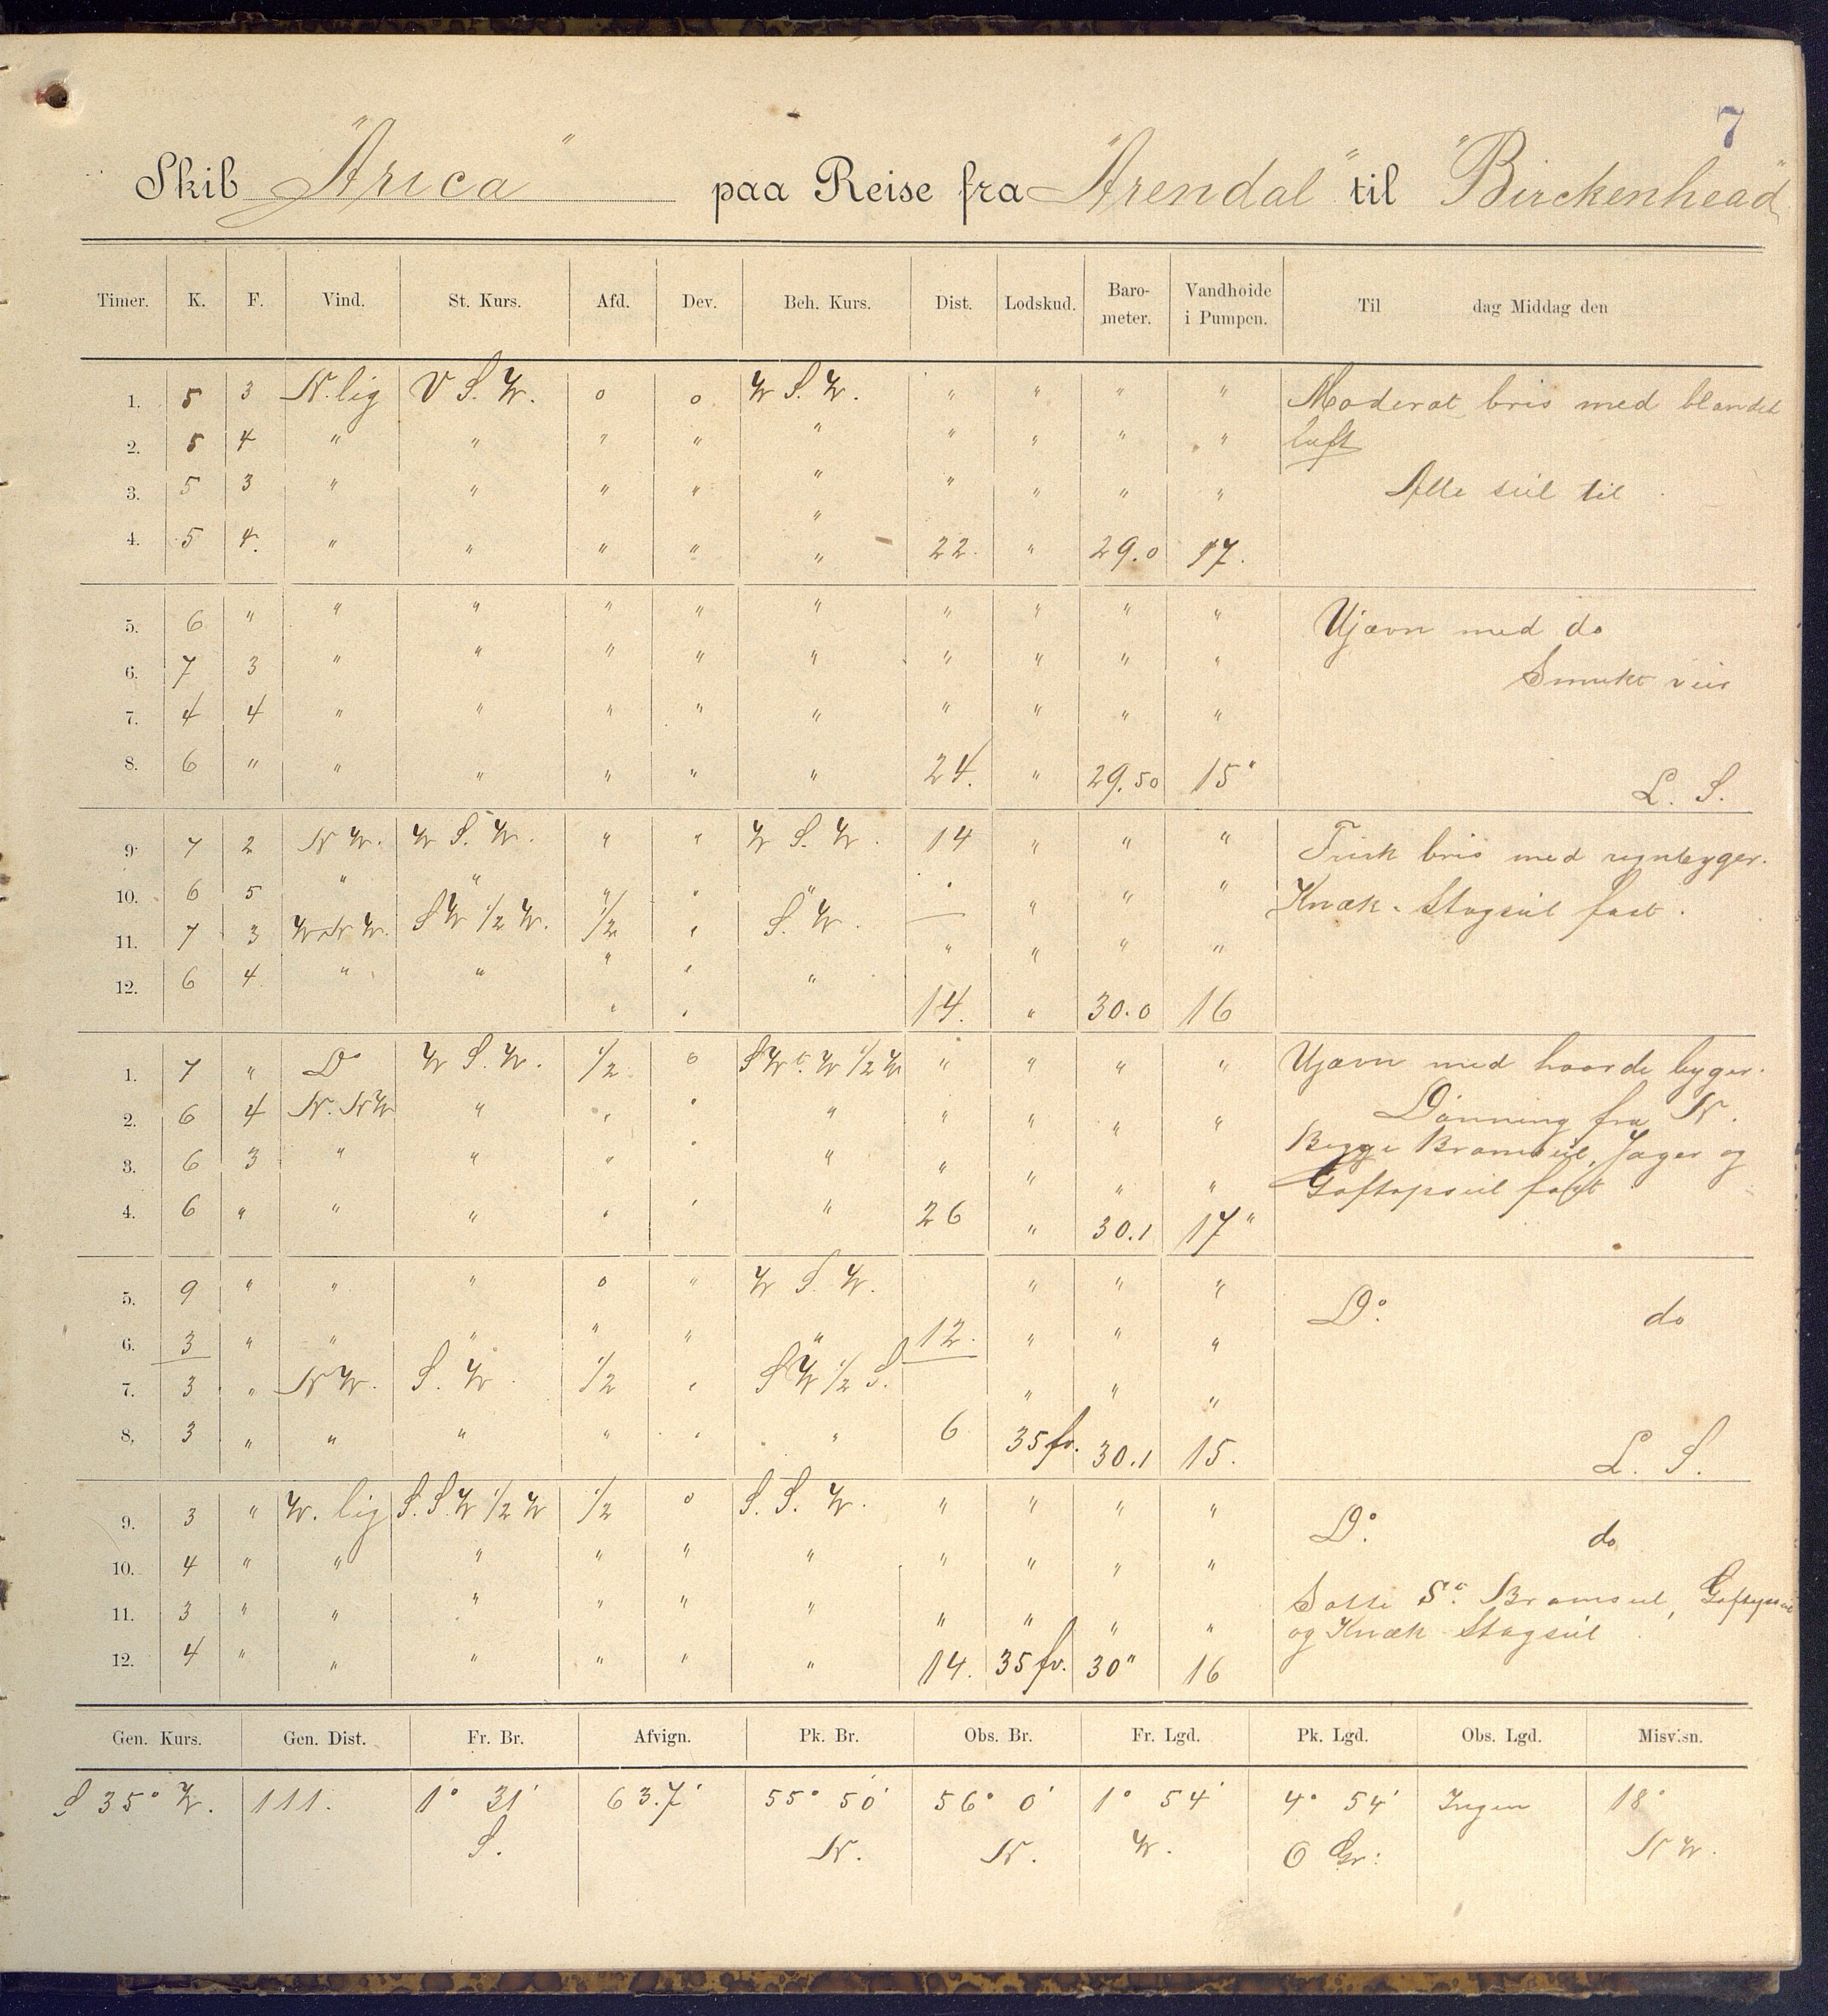 7
Skib "Arica" paa Reise fra "Arendal" til "Birckenhead"
Timer. K. F. Vind. St. Kurs. Afd. Dev. Beh. Kurs. Dist. Lodskud. Baro-meter. Vandhoide i Pumpen. Til dag Middag den
1. 5 3 N. lig V S. W. 0 0 W S. W. " " " " Moderat bris med blandet
2. 5 4 " " " " " " " " " luft
3. 5 3 " " " " " " " " " Alle seil til
4. 5 4. " " " " " 22. " 29.0 17.
5. 6 " " " " " " " " " " Ujævn med do
6. 7 3 " " " " " " " " " Smukt veir
7. 4 4 " " " " " " " " "
8. 6 " " " " " " 24. " 29.50 15" L. S.
9. 7 2 N W. W S. W. " " W S. W. 14 " " " Frisk bris med regnbyger.
10. 6 5 " " " " " " " " " Knæk-Stagseil fast.
11. 7 3 W N W. S W 1/2 W. 1/2 " S. W. " " " "
12. 6 4 " " " " " 14. " 30.0 16
1. 7 " Do W S. W. 1/2 0 S W t. W 1/2 W " " " " Ujævn med haarde byger.
2. 6 4 N. N W " " " " " " " " Dønning fra N.
3. 6 3 " " " " " " " " " Begge Bramseil, Jager og
4. 6 " " " " " " 26 " 30.1 17" Gaftopseil fast
5. 9 " " " 0 " W S. W. " " "
6. 3 " " " " " " 12. " " " Do. do
7. 3 " N W. S. W. 1/2 " S W 1/2 S. " " "
8. 3 " " " " " " 6 35 fv. 30.1 15. L. S.
9. 3 " W. lig S. S. W 1/2 W 1/2 0 S. S. W. " " " " Do. do
10. 4 " " " " " " " " " "
11. 3 " " " " " " " " " " Satte St. Bramseil,
12. 4 " " " " " " 14. 35 fv. 30" 16 og Knæk-Stagseil
Gen. Kurs. Gen. Dist. Fr. Br. Afvign. Pk. Br. Obs. Br. Fr. Lgd. Pk. Lgd. Obs. Lgd. Misvisn.
S 35° W. 111. 1° 31' 63.7' 55° 50' 56° 0' 1° 54' 4° 54' Ingen 18°
S. N. N. W. O Gr: N W.